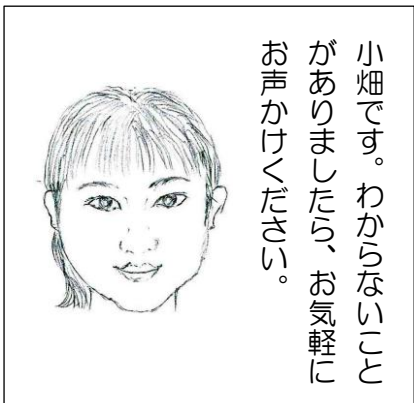 小畑です。わからないこと
がありましたら、お気軽に
お声かけください。